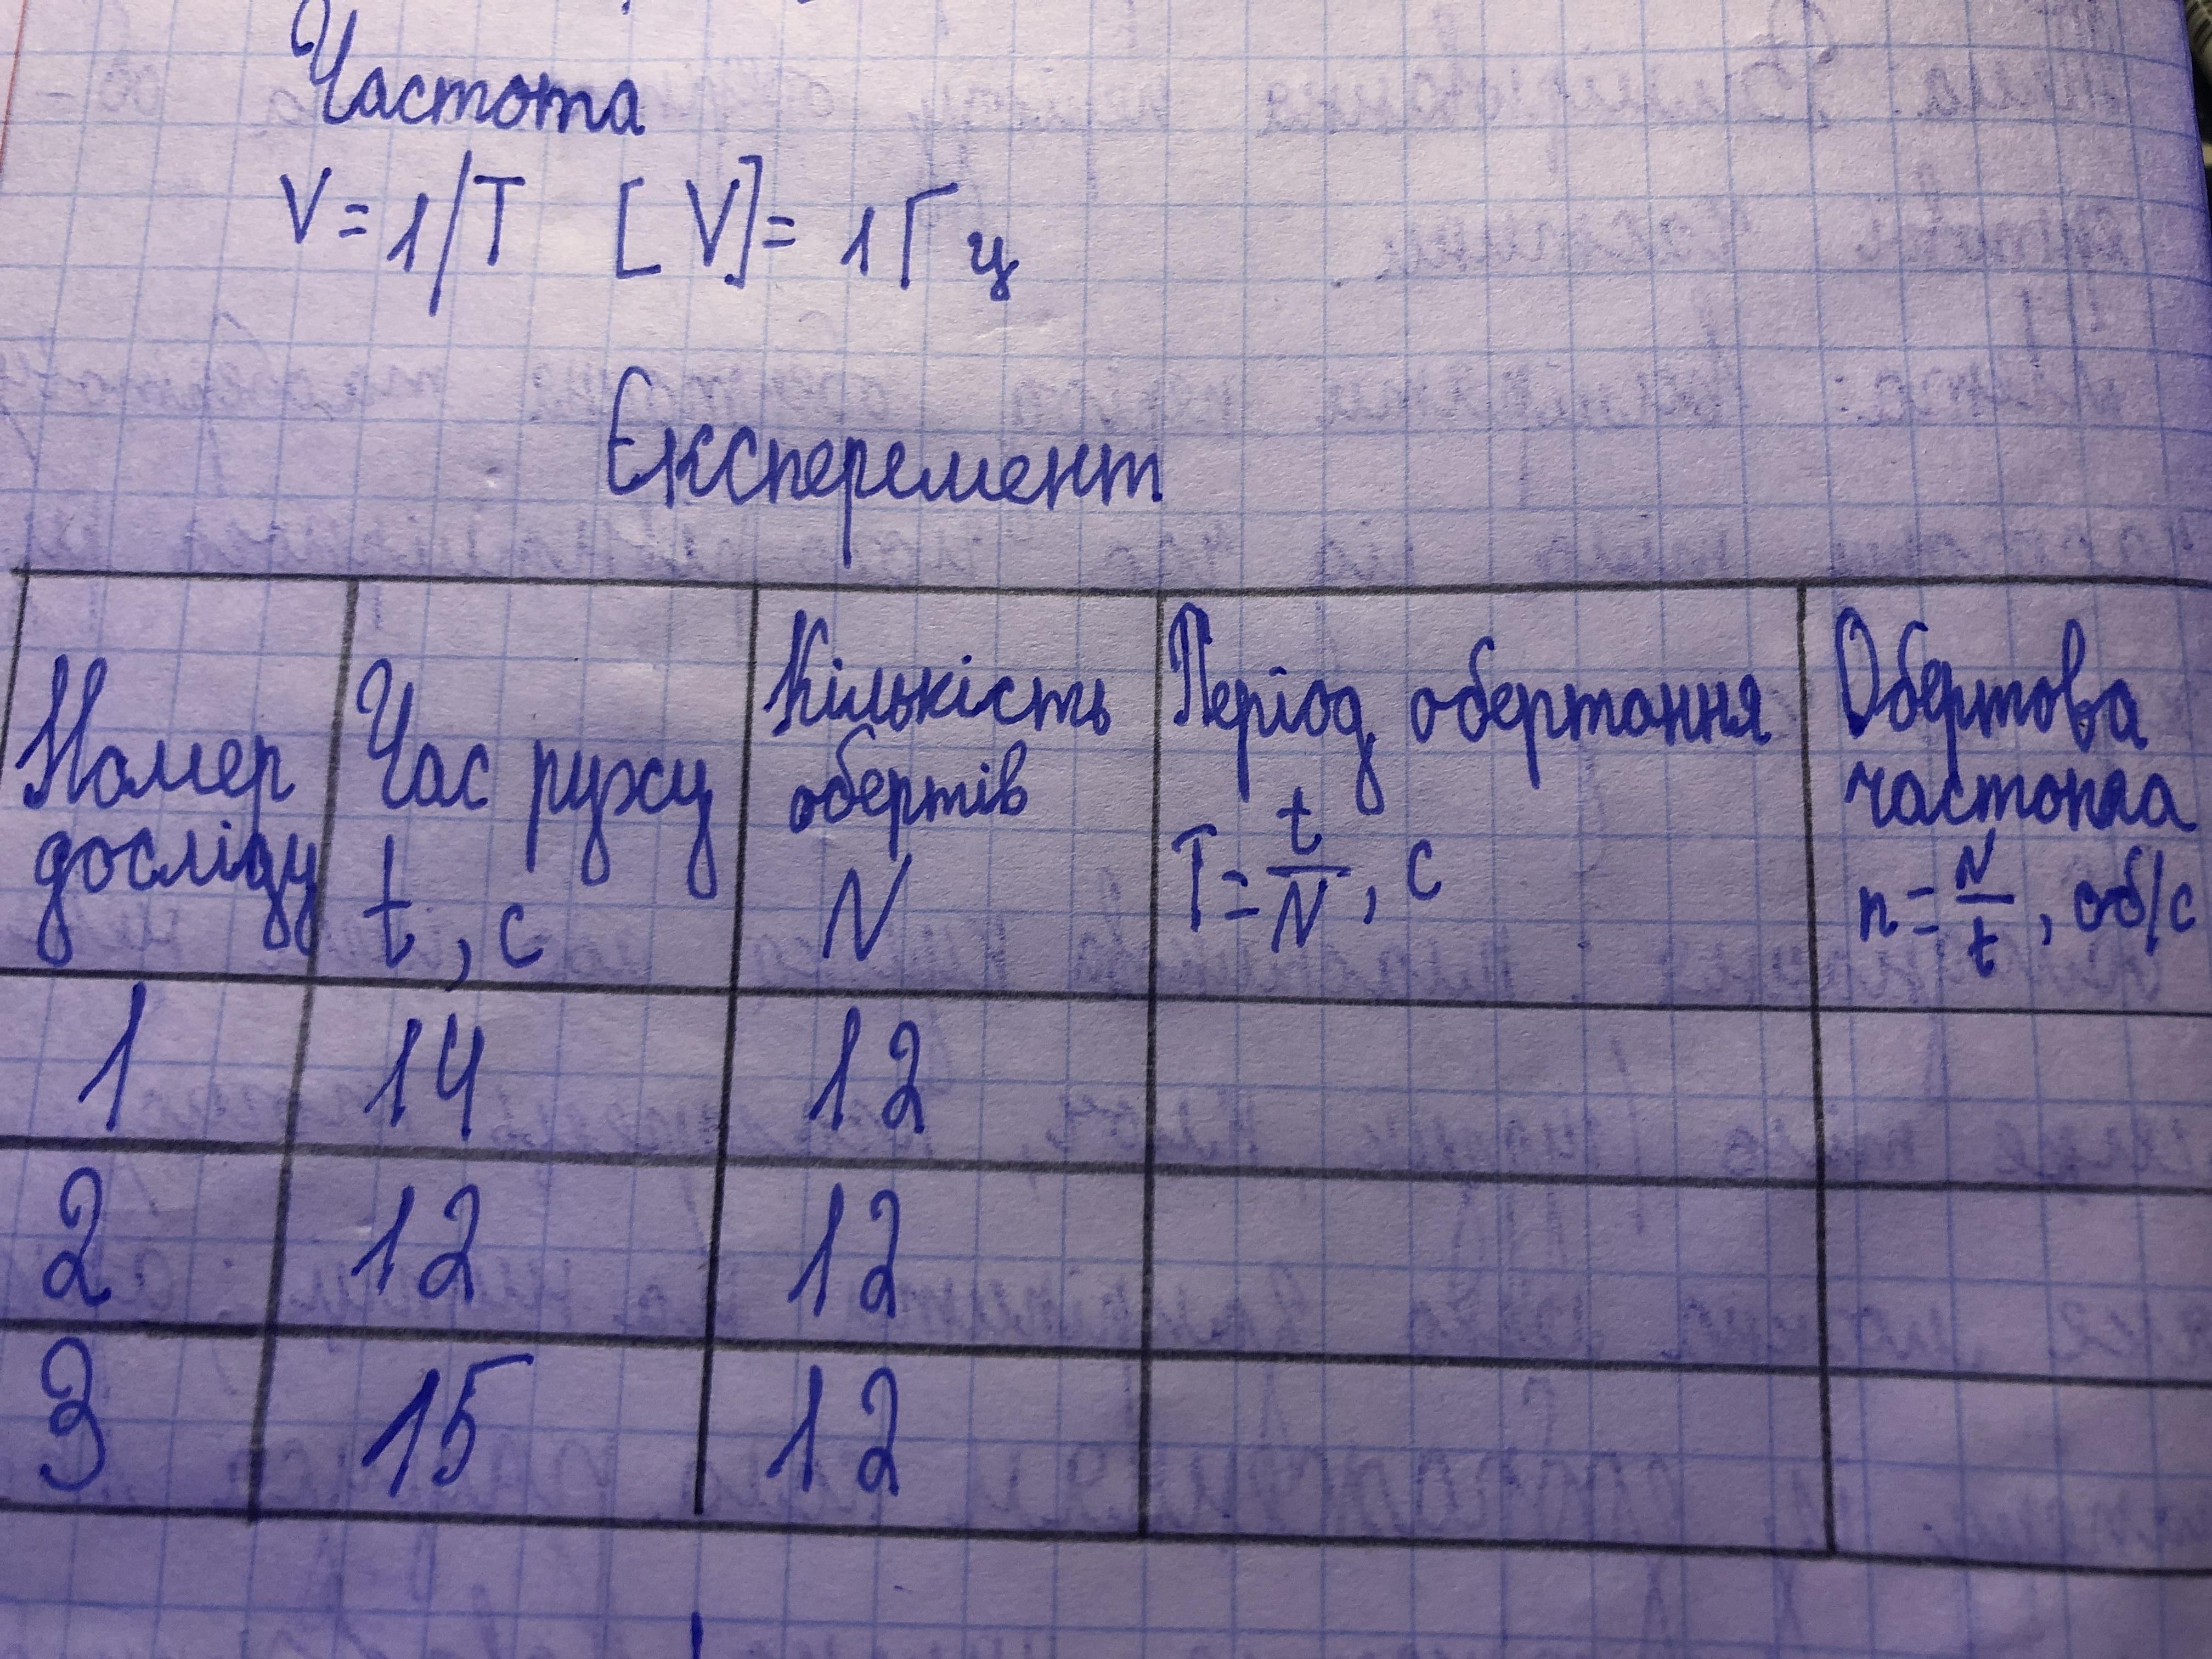 Частота
V = 1/T [V] = 1Гц
Експеремент
Номер досліду
Час руху
t, с
Кількість обертів
N
Період обертання
T = t/N, с
Обертова частота
n = N/t, об/с
1 14 12
2 12 12
3 15 12